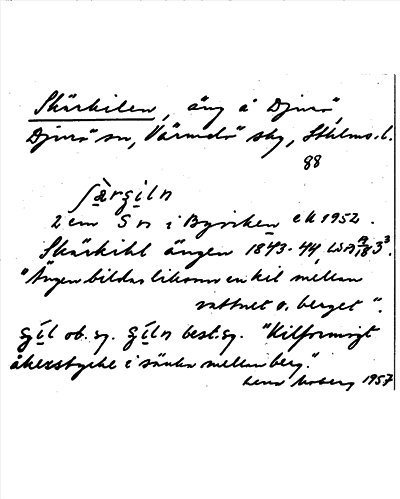 Skärkilen, äng å Djurö,
Djurö sn, Värmdö skg, Sthlms. l.
98
ʃæ̀rꞔiln
2 cm S n i Byviken ek 1952.
Skärkihl ängen 1843-44, LSA
"Ängen bildar likom en kil mellan
vattnet o. berget".
ꞔil ob. sg. ꞔiln best. sg. "Kilformigt
åkerstycke i sänka mellan berg."
Moberg 1957